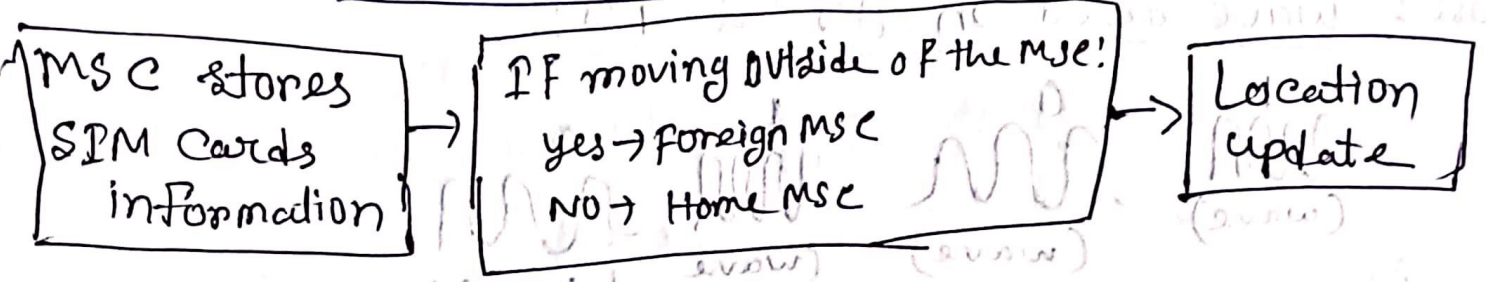 MSC stores
SIM Cards
information
IF moving outside of the MSC:
yes → Foreign MSC
NO → Home MSC
Location
update
(wave)
(wave)
(wave)